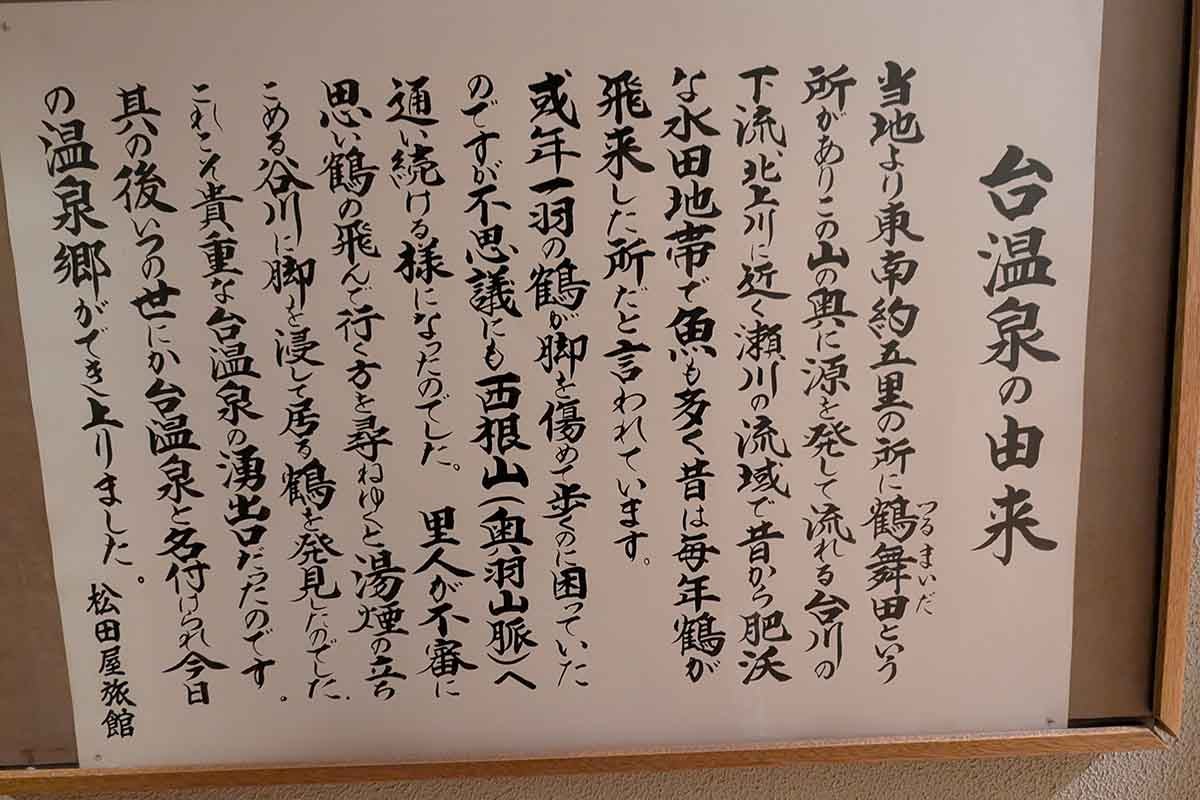 台温泉の由来
当地より東南約五里の所に鶴舞田という
つるまいだ
所がありこの山の奥に源を発して流れる台川の
下流北上川に近く瀬川の流域で昔から肥沃
な水田地帯で魚も多く昔は毎年鶴が
飛来した所だと言われています。
或年一羽の鶴が脚を傷めて歩くのに困っていた
のですが不思議にも西根山(奥羽山脈)へ
通い続ける様になったのでした。 里人が不審に
思い鶴の飛んで行く方を尋ねゆくと湯煙の立ち
こめる谷川に脚を浸して居る鶴を発見したのでした.
これこそ貴重な台温泉の湧出口だったのです。
其の後いつの世にか台温泉と名付けられ今日
の温泉郷ができ上りました。
松田屋旅館